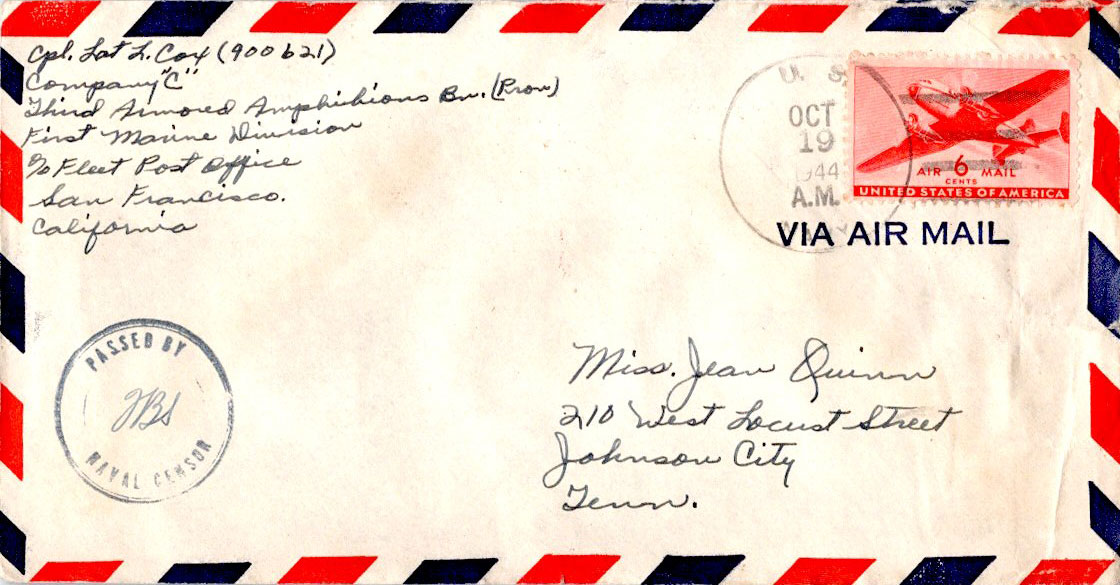 Cpl. Lat L. Cox (900621)
Company "C"
Third Armored Amphibious Bn. (Prov)
First Marine Division
℅ Fleet Post Office
San Francisco.
California
U. S.
OCT
19
1944
A.M.
AIR 6 MAIL
CENTS
UNITED STATES OF AMERICA
VIA AIR MAIL
PASSED BY
NAVAL CENSOR
Miss. Jean Quinn
210 West Locust Street
Johnson City
Tenn.